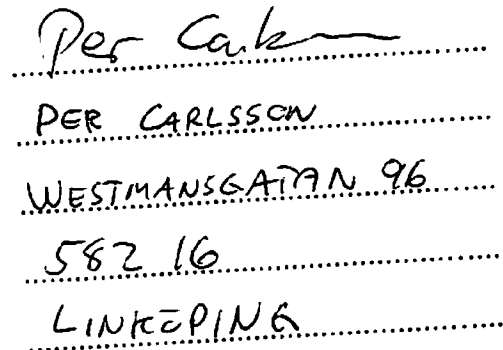 Per Carlsson
PER CARLSSON
WESTMANSGATAN 96
582 16
LINKÖPING